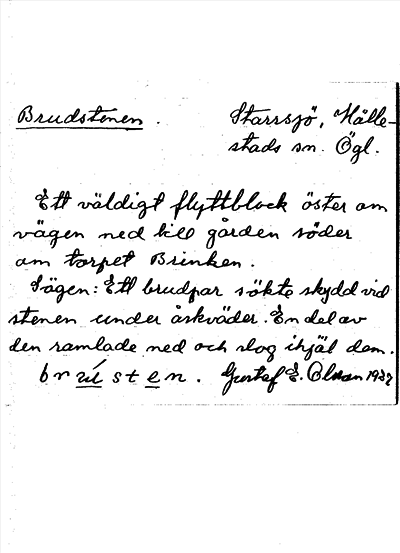 Brudstenen. Starrsjö, Hälle-
stads sn. Ögl.
Ett väldigt flyttblock öster om
vägen ned till gården söder
om torpet Brinken.
Sägen: Ett brudpar sökte skydd vid
stenen under åskväder. En del av
den ramlade ned och slog ihjäl dem.
brústen. Gustaf E. Olsson